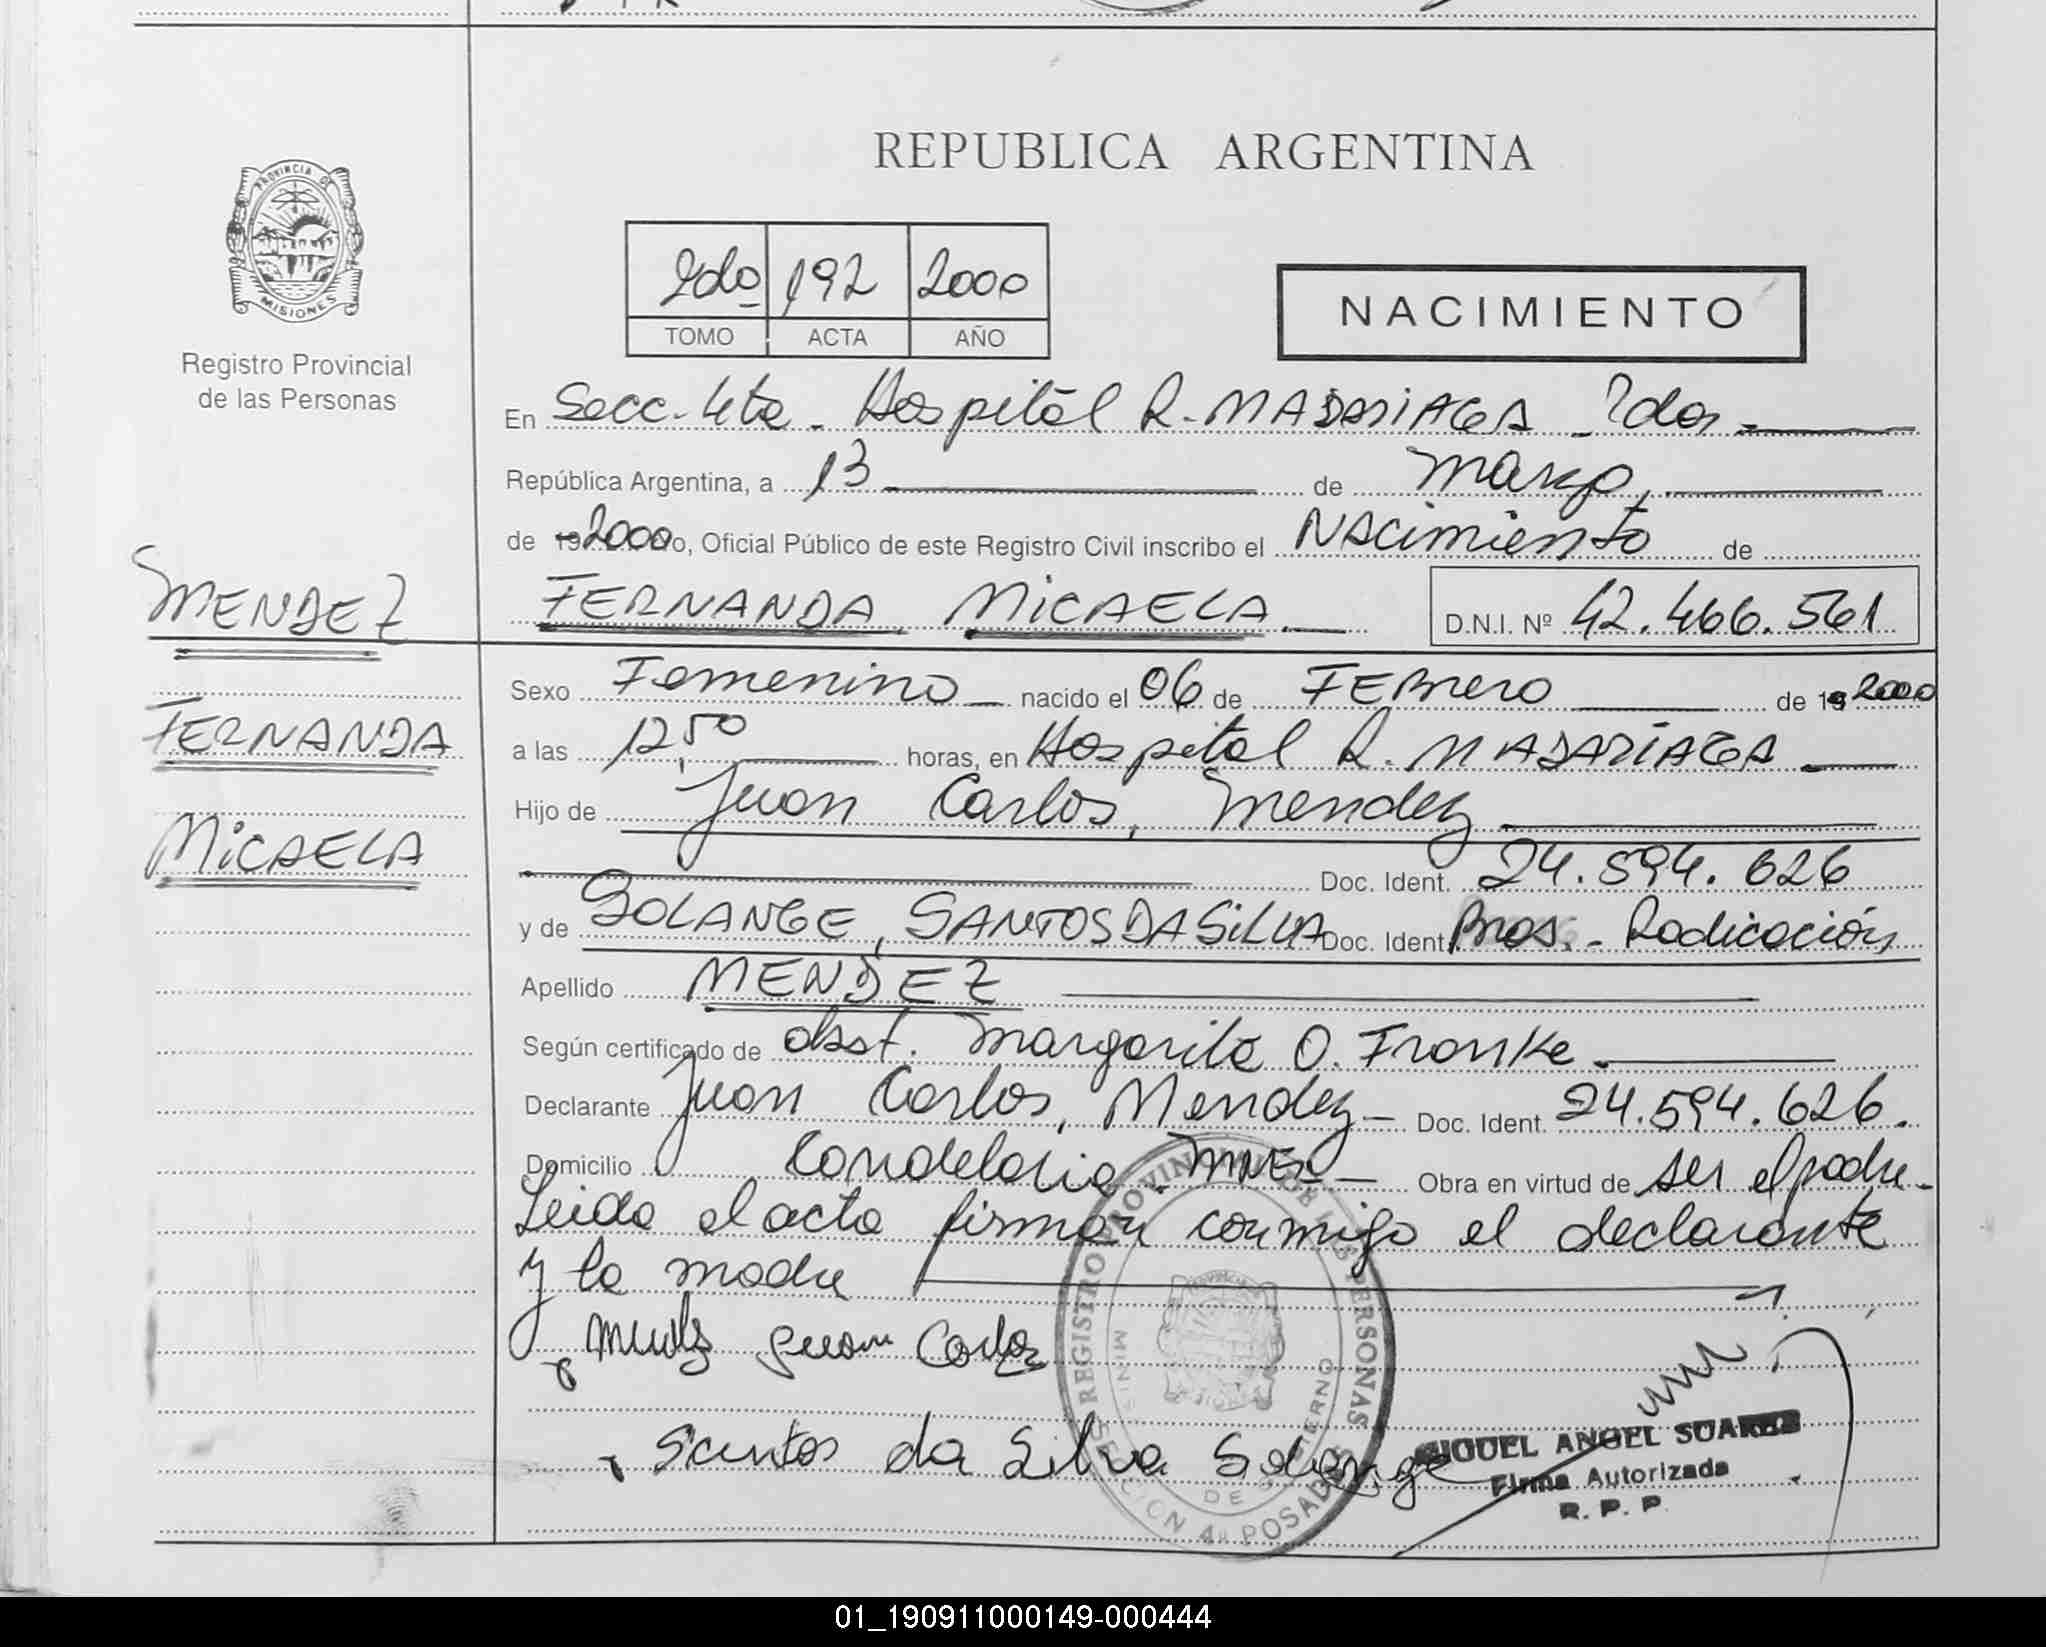 REPUBLICA ARGENTINA
PROVINCIA DE
MISIONES
Registro Provincial
de las Personas
2do 192 2000
TOMO ACTA AÑO
NACIMIENTO
En Secc. 4ta - Hospital R. MADARIAGA - Pdas
República Argentina, a 13 de Marzo,
de 2000, Oficial Público de este Registro Civil inscribo el NACimiento de
FERNANDA MiCAELA D.N.I. Nº 42.466.561
MENDEZ
FERNANDA
MiCAELA
Sexo Femenino nacido el 06 de FEBrero de 2000
a las 12,50 horas, en Hospital R. MADARIAGA
Hijo de Juan Carlos, Mendez
Doc. Ident. 24.594.626
y de SOLANGE, SANTOS DA SiLVA Doc. Ident. Bras. - Radicación
Apellido MENDEZ
Según certificado de obst. Margarita O. Franke
Declarante Juan Carlos, Mendez Doc. Ident. 24.594.626.
Domicilio Candelaria - MNES Obra en virtud de ser el padre
Leida el acta firman conmigo el declarante
y la madre
Juan Carlos
Santos da Silva Solange
REGISTRO PROVINCIAL DE LAS PERSONAS
DE GOBIERNO
SECCION 4ª POSADAS
MIGUEL ANGEL SUAREZ
Firma Autorizada
R. P. P.
01_190911000149-000444